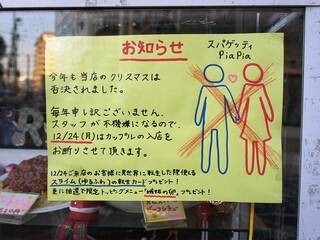 お知らせ
スパゲッティ
PiaPia
今年も当店のクリスマスは
否決されました。
毎年申し訳ございません、
スタッフが不機嫌になるので、
12/24(月)はカップルの入店を
お断りさせて頂きます。
12/24ご来店のお客様に異世界に転生した際使える
スライム(ゆるふわ)の転生カードプレゼント!
更に抽選で限定トッピングメニュー「嫉妬の卵」プレゼント!